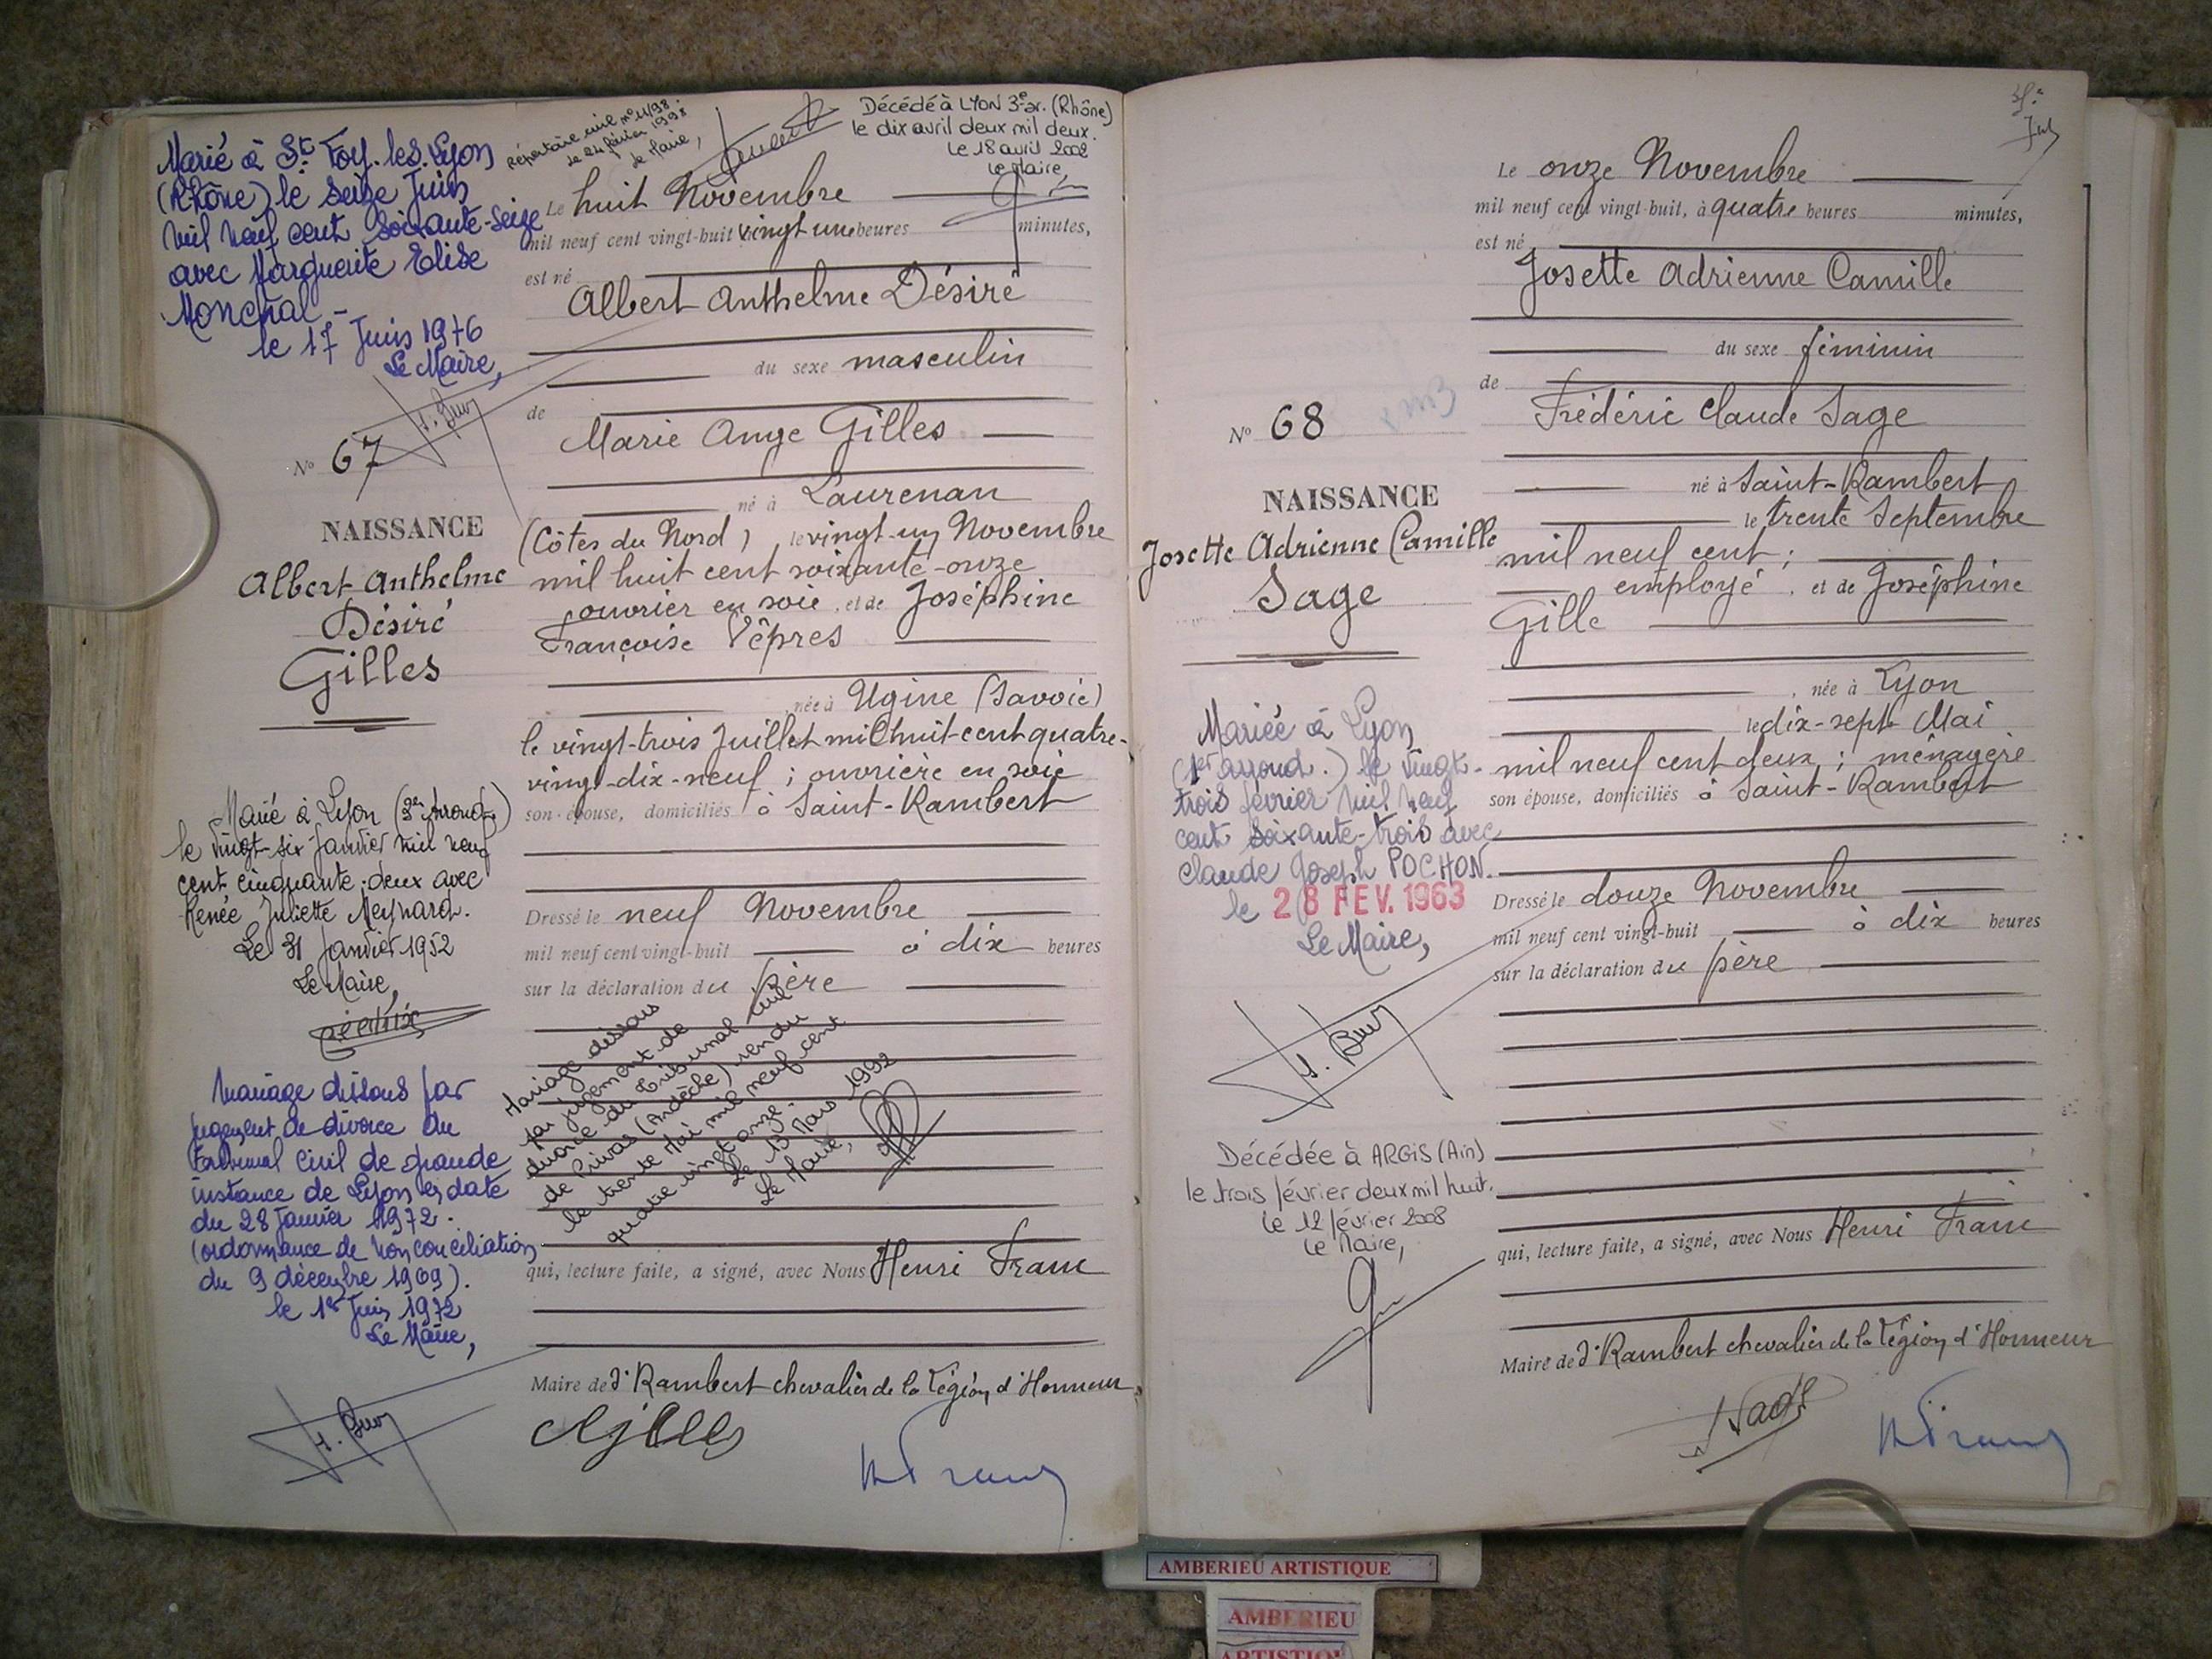 Marié à St Foy-les-Lyon
(Rhône) le seize Juin
mil neuf cent soixante-seize
avec Marguerite Elise
Monchal -
le 17 Juin 1976
Le Maire,
Répertoire civil n° 11/98.
le 24 février 1998
Le Maire,
Décédé à LYON 3e ar. (Rhône)
le dix avril deux mil deux.
Le 18 avril 2002
Le Maire,
N° 67
NAISSANCE
Albert Anthelme
Désiré
Gilles
Marié à Lyon (2e arrond.)
le vingt-six Janvier mil neuf
cent cinquante-deux avec
Renée Juliette Meynard.
Le 31 Janvier 1952
Le Maire,
Mariage dissous par
jugement de divorce du
tribunal civil de grande
instance de Lyon en date
du 28 Janvier 1972.
(ordonnance de non conciliation
du 9 décembre 1969).
le 1er Juin 1972
Le Maire,
H. Buy
Le huit Novembre
mil neuf cent vingt-huit vingt une heures minutes,
est né
Albert Anthelme Désiré
du sexe masculin
de
Marie Ange Gilles
né à Laurenan
(Côtes du Nord), le vingt-un Novembre
mil huit cent soixante-onze
ouvrier en soie, et de Joséphine
Françoise Vêpres
, née à Ugine (Savoie)
le vingt-trois Juillet mil huit cent quatre-
vingt-dix-neuf ; ouvrière en soie
son épouse, domiciliés à Saint-Rambert
Dressé le neuf Novembre
mil neuf cent vingt-huit à dix heures
sur la déclaration du père
Mariage dissous
par jugement de
divorce du Tribunal civil
de Privas (Ardèche) rendu
le trente Mai mil neuf cent
quatre vingt onze.
Le 13 Mars 1992
Le Maire,
qui, lecture faite, a signé, avec Nous Henri Franc
Maire de St Rambert chevalier de la Légion d'Honneur
H Franc
N° 68
NAISSANCE
Josette Adrienne Camille
Sage
Mariée à Lyon
(1er arrond.) le vingt-
trois février mil neuf
cent soixante-trois avec
Claude Joseph POCHON.
le 28 FEV. 1963
Le Maire,
H. Buy
Décédée à ARGIS (Ain)
le trois février deux mil huit.
Le 12 février 2008
Le Maire,
Le onze Novembre
mil neuf cent vingt-huit, à quatre heures minutes,
est né
Josette Adrienne Camille
du sexe féminin
de
Frédéric Claude Sage
né à Saint-Rambert
le trente Septembre
mil neuf cent ;
employé, et de Joséphine
Gille
, née à Lyon
le dix-sept Mai
mil neuf cent deux ; ménagère
son épouse, domiciliés à Saint-Rambert
Dressé le douze Novembre
mil neuf cent vingt-huit à dix heures
sur la déclaration du père
qui, lecture faite, a signé, avec Nous Henri Franc
Maire de St Rambert chevalier de la Légion d'Honneur
H Franc
AMBERIEU ARTISTIQUE
AMBERIEU
ARTISTIQUE